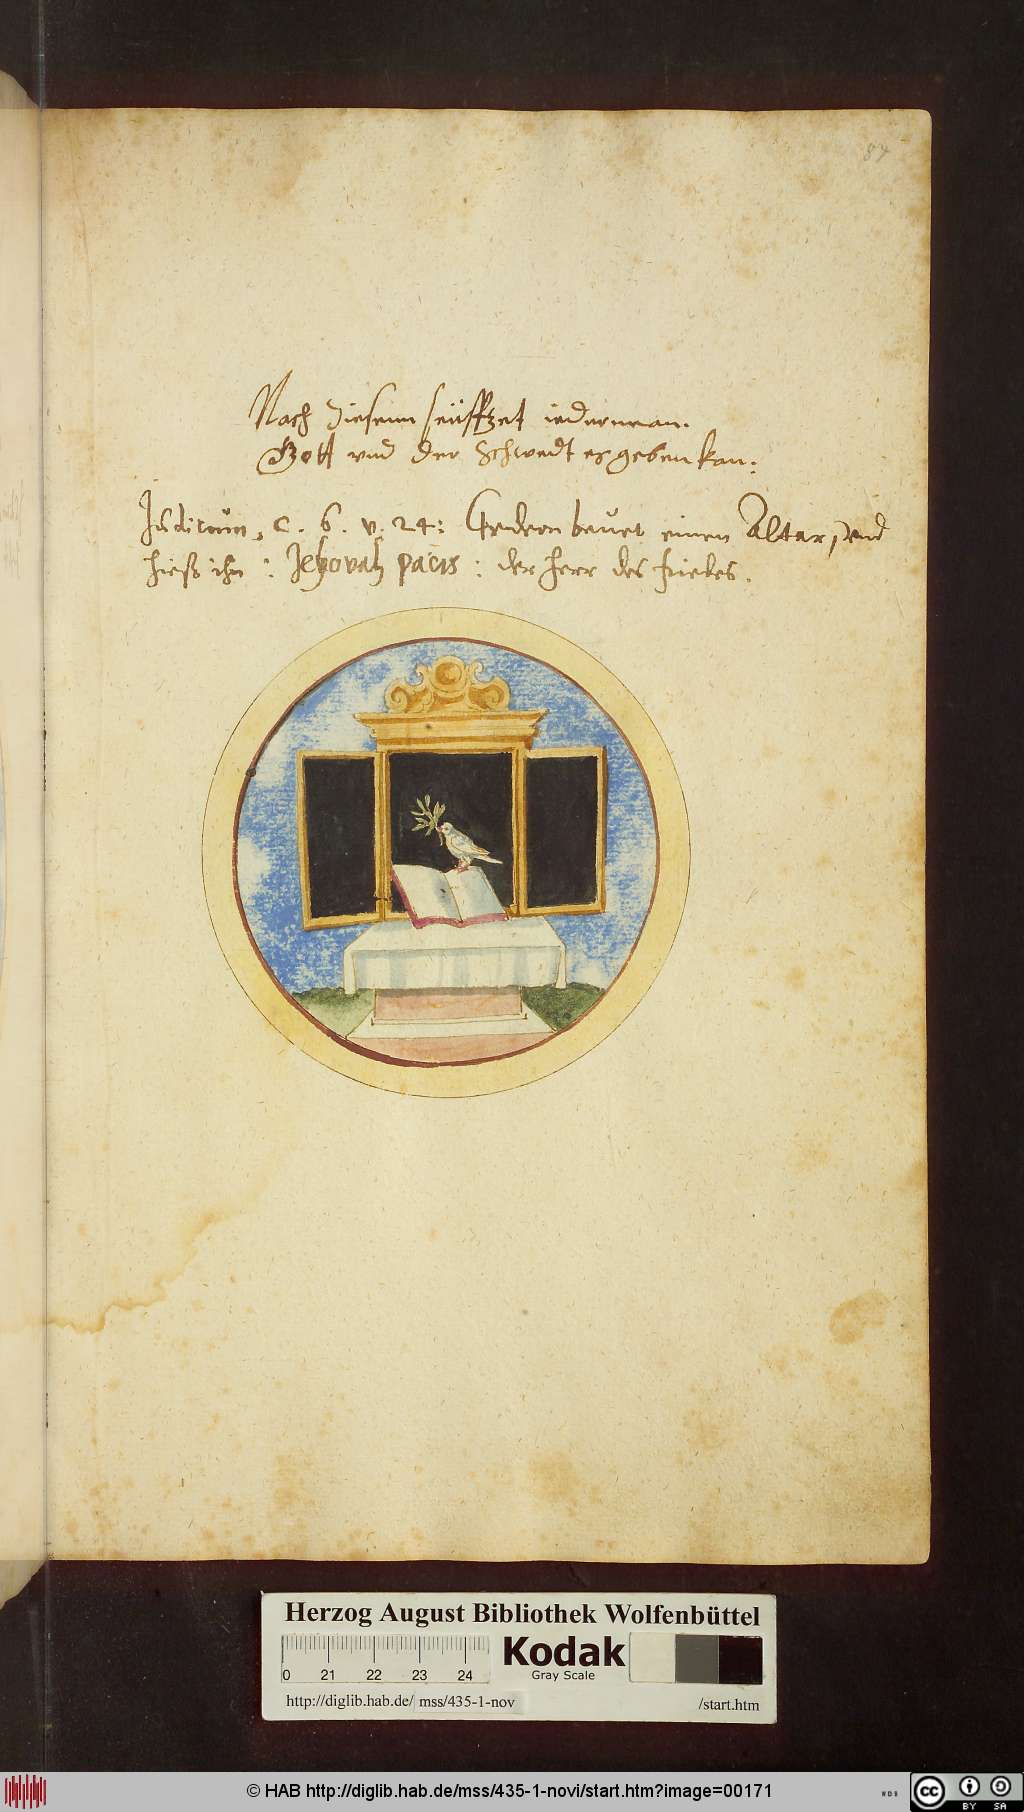 87
Nach diesem seüfftzet iederman.
Gott vnd der Schwedt es geben kan:
Judicum, C. 6. v. 24: Gedeon bauet einen Altar, vnd
hieß ihn : Jehovah pacis : der Herr des friedes.
Herzog August Bibliothek Wolfenbüttel
0 21 22 23 24
Kodak
Gray Scale
http://diglib.hab.de/ mss/435-1-nov /start.htm
© HAB http://diglib.hab.de/mss/435-1-novi/start.htm?image=00171
cc BY SA